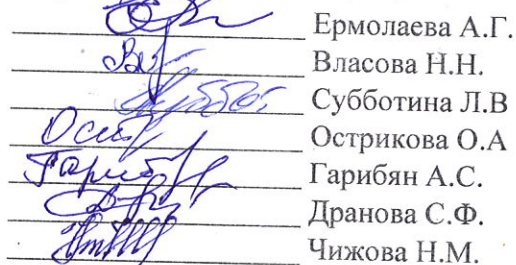 Ермолаева А.Г.
Власова Н.Н.
Субботина Л.В
Острикова О.А
Гарибян А.С.
Дранова С.Ф.
Чижова Н.М.